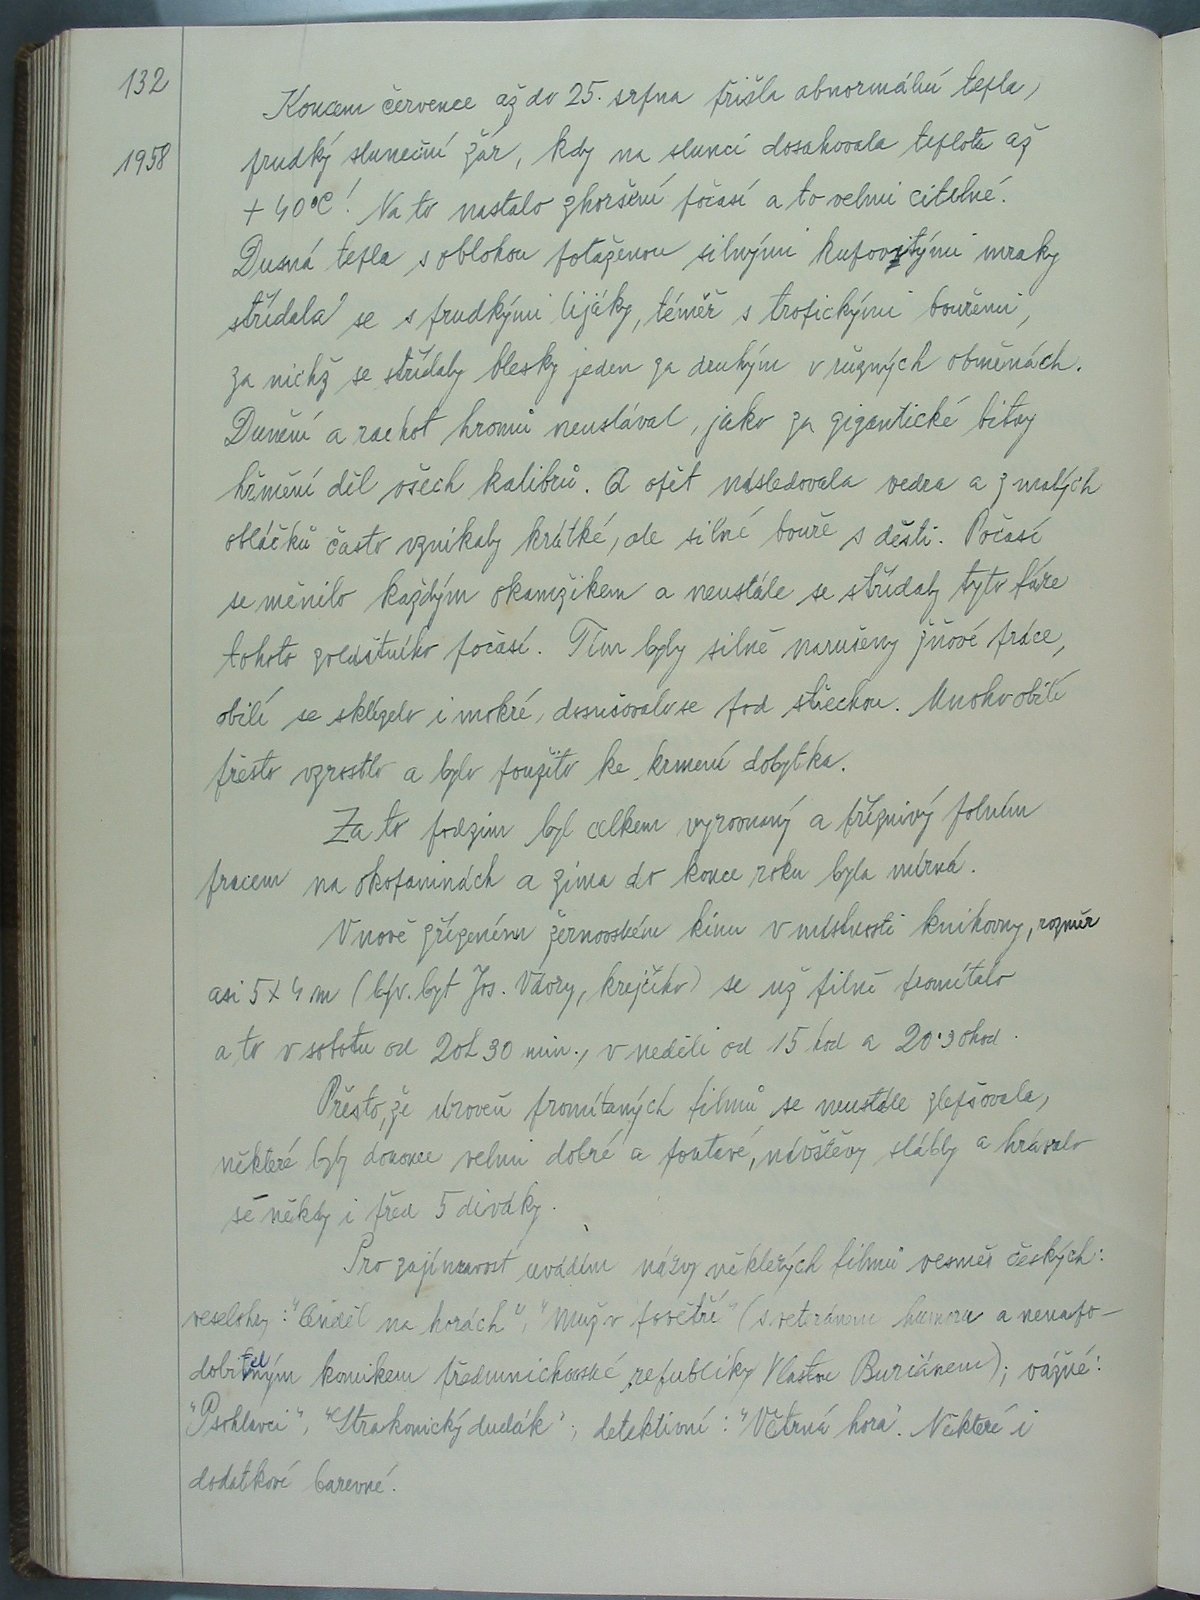 132
Koncem července až do 25. srpna přišla abnormální tepla,
1958
prudký sluneční žár, kdy na slunci dosahovala teplota až
+ 40°C! Na to nastalo zhoršení počasí a to velmi citelné.
Dusná tepla s oblohou potaženou silnými kupovitými mraky
střídala se s prudkými lijáky, téměř s tropickými bouřemi,
za nichž se střídaly blesky jeden za druhým v různých obměnách.
Dunění a rachot hromů neustával, jako za gigantické bitvy
hřmění děl všech kalibrů. A opět následovala vedra a z malých
obláčků často vznikaly krátké, ale silné bouře s dešti. Počasí
se měnilo každým okamžikem a neustále se střídaly tyto fáze
tohoto zvláštního počasí. Tím byly silně narušeny žňové práce,
obilí se sklízelo i mokré, dosušovalo se pod střechou. Mnoho obilí
přesto vzrostlo a bylo použito ke krmení dobytka.
Za to podzim byl celkem vyrovnaný a příznivý polním
pracem na okopaninách a zima do konce roku byla mírná.
V nově zřízeném žernovském kinu v místnosti knihovny, rozměr
asi 5 x 4 m (býv. byt Jos. Vávry, krejčího) se už pilně promítalo
a to v sobotu od 20h 30 min., v neděli od 15 hod a 20.30hod.
Přesto, že úroveň promítaných filmů se neustále zlepšovala,
některé byly dokonce velmi dobré a poutavé, návštěvy slábly a hrávalo
se někdy i před 5 diváky.
Pro zajímavost uvádím názvy některých filmů vesměs českých:
veselohry: "Anděl na horách", "Muž v povětří" (s veteránem humoru a nenapo-
dobitelným komikem předmnichovské republiky Vlastou Burianem); vážné:
"Psohlavci", "Strakonický dudák"; detektivní: "Větrná hora". Některé i
dodatkové barevné.